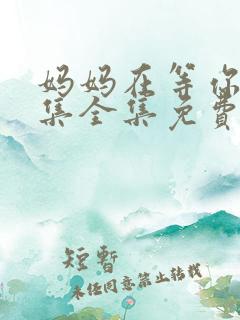 妈妈在等你
集全集免費
短暫
未经同意禁止转载